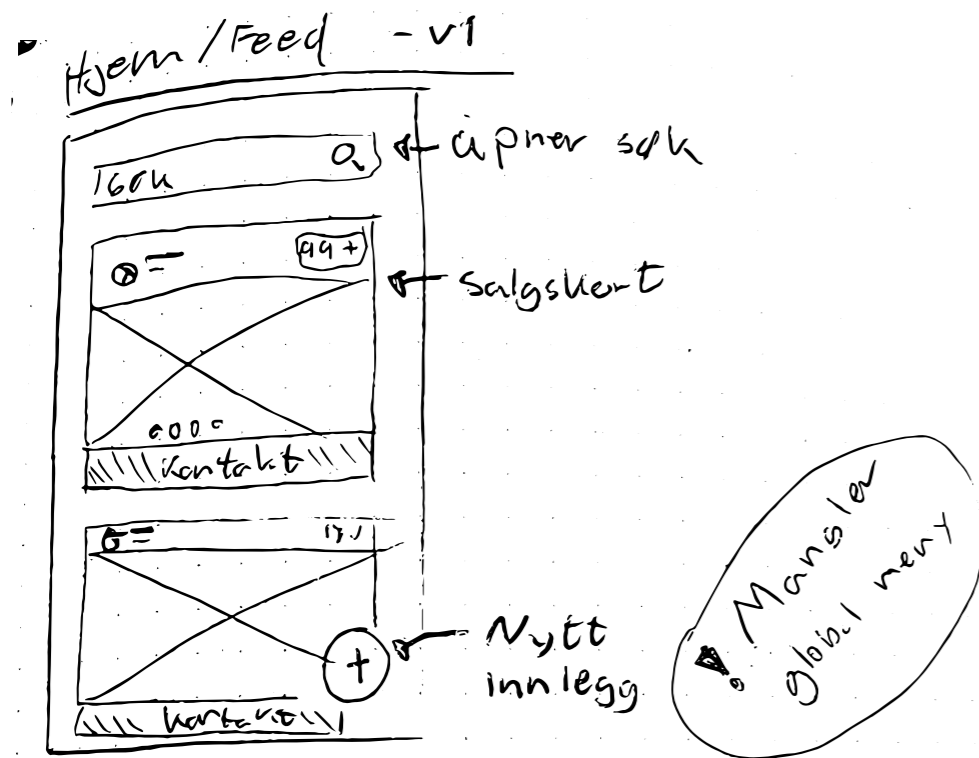 Hjem / Feed - v1
Søk
åpner søk
99+
salgskort
Kontakt
Nytt
innlegg
+
kontakt
! Mangler
global meny